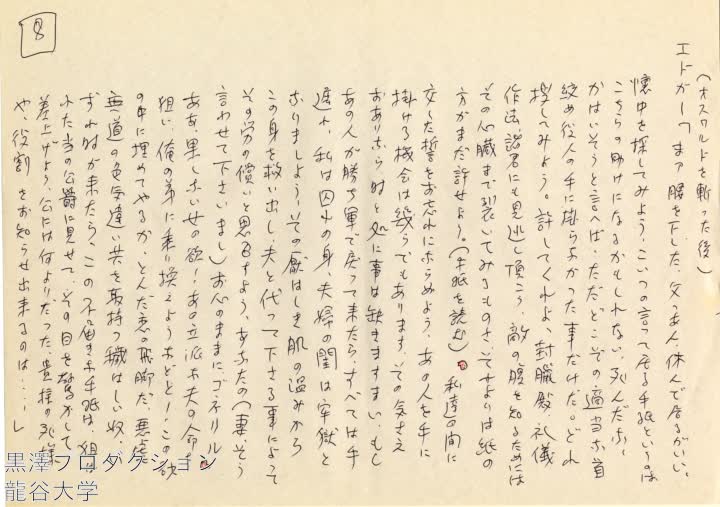 8
（オスワルドを斬った後）
エドガー「まァ腰を下した、父つあん、休んで居るがいい。
懐中を探してみよう、こいつの言って居る手紙というのは
こちらの助けになるかもしれない、死んだな、
かはいそうと言へば、ただどこぞの適当な首
絞め役人の手に掛らなかった事だけだ。どれ
探してみよう。許してくれよ、封臘殿、礼儀
作法諸君にも見逃し頂こう、敵の腹を知るためには
その心臓まで裂いてみるものさ、それよりは紙の
方がまだ許せよう。（手紙を読む）私達の間に
交した誓をお忘れにならぬよう、あの人を手に
掛ける機会は幾らでもあります、その気さえ
おありなら時と処に事は缺きますまい、もし
あの人が勝ち軍で戻って来たら、すべては手
遅れ、私は囚はの身、夫婦の閨は牢獄と
なりましよう、その厭はしき肌の温みから
この身を救い出し、夫と代って下さる事によって
その労の償いと思召すよう、あなたの（妻、そう
言わせて下さいまし）お心のままに ゴネリル
ああ、果しない女の欲！あの立派な夫の命を
狙い、俺の弟に乗り換えようなどと！この砂
の中に埋めてやるか、とんだ恋の飛脚だ、悪虐
無道の色気違い共を取持つ穢はしい奴、
ずれ時が来たら、この不届きな手紙は、狙は
れた当の公爵に見せて、その目を驚かして
差上げよう、公には何よりだった貴様の死様
や、役割をお知らせ出来るのは・・・・」
黒澤プロダクション
龍谷大学